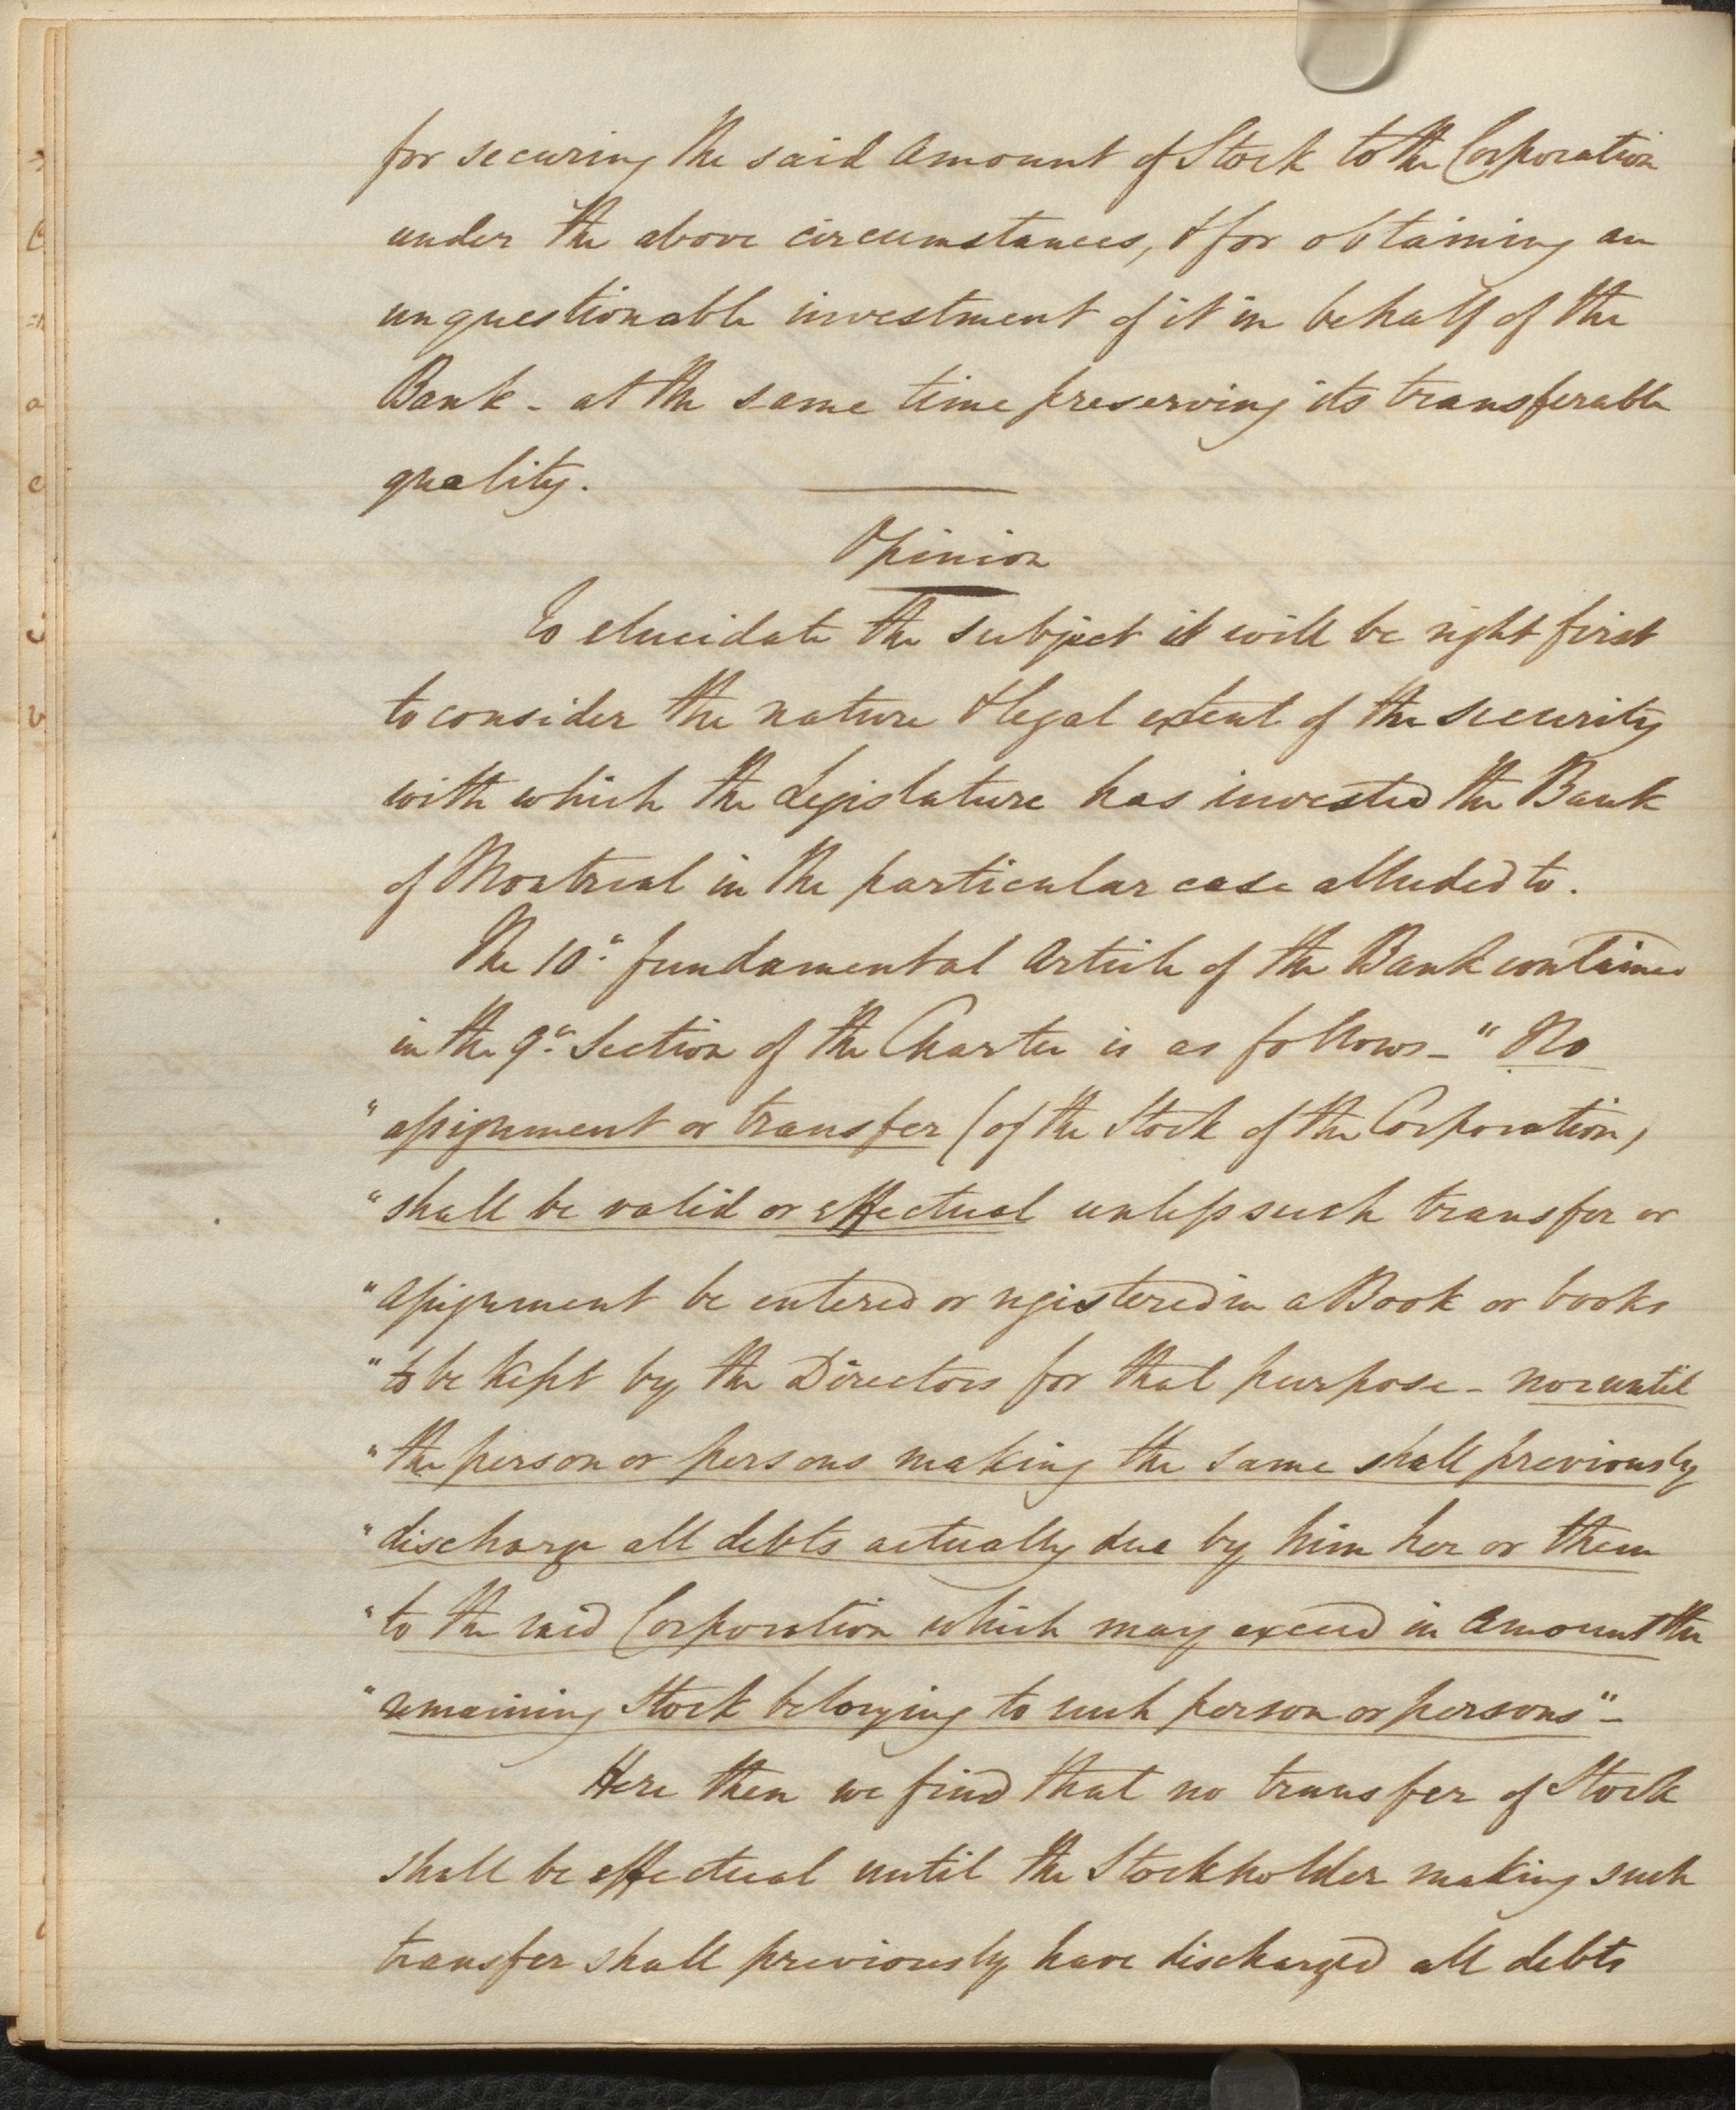 for securing the said amount of Stock to the Corporation
under the above circumstances, & for obtaining an
unquestionable investment of it in behalf of the
Bank - at the same time preserving its transferable
quality.
Opinion
To elucidate the subject it will be right first
to consider the nature & legal extent of the security
with which the Legislature has invested the Bank
of Montreal in the particular case alluded to.
The 10.th fundamental article of the Bank contained
in the 9.th Section of the Charter is as follows - "No
"assignment or transfer (of the Stock of the Corporation)
"shall be valid or effectual unless such transfer or
"assignment be entered or registered in a Book or books
"to be kept by the Directors for that purpose - nor until
"the person or persons making the same shall previously
"discharge all debts actually due by him her or them
"to the said Corporation which may exceed in amount the
"remaining Stock belonging to such person or persons" -
Here then we find that no transfer of Stock
shall be effectual until the Stockholder making such
transfer shall previously have discharged all debts